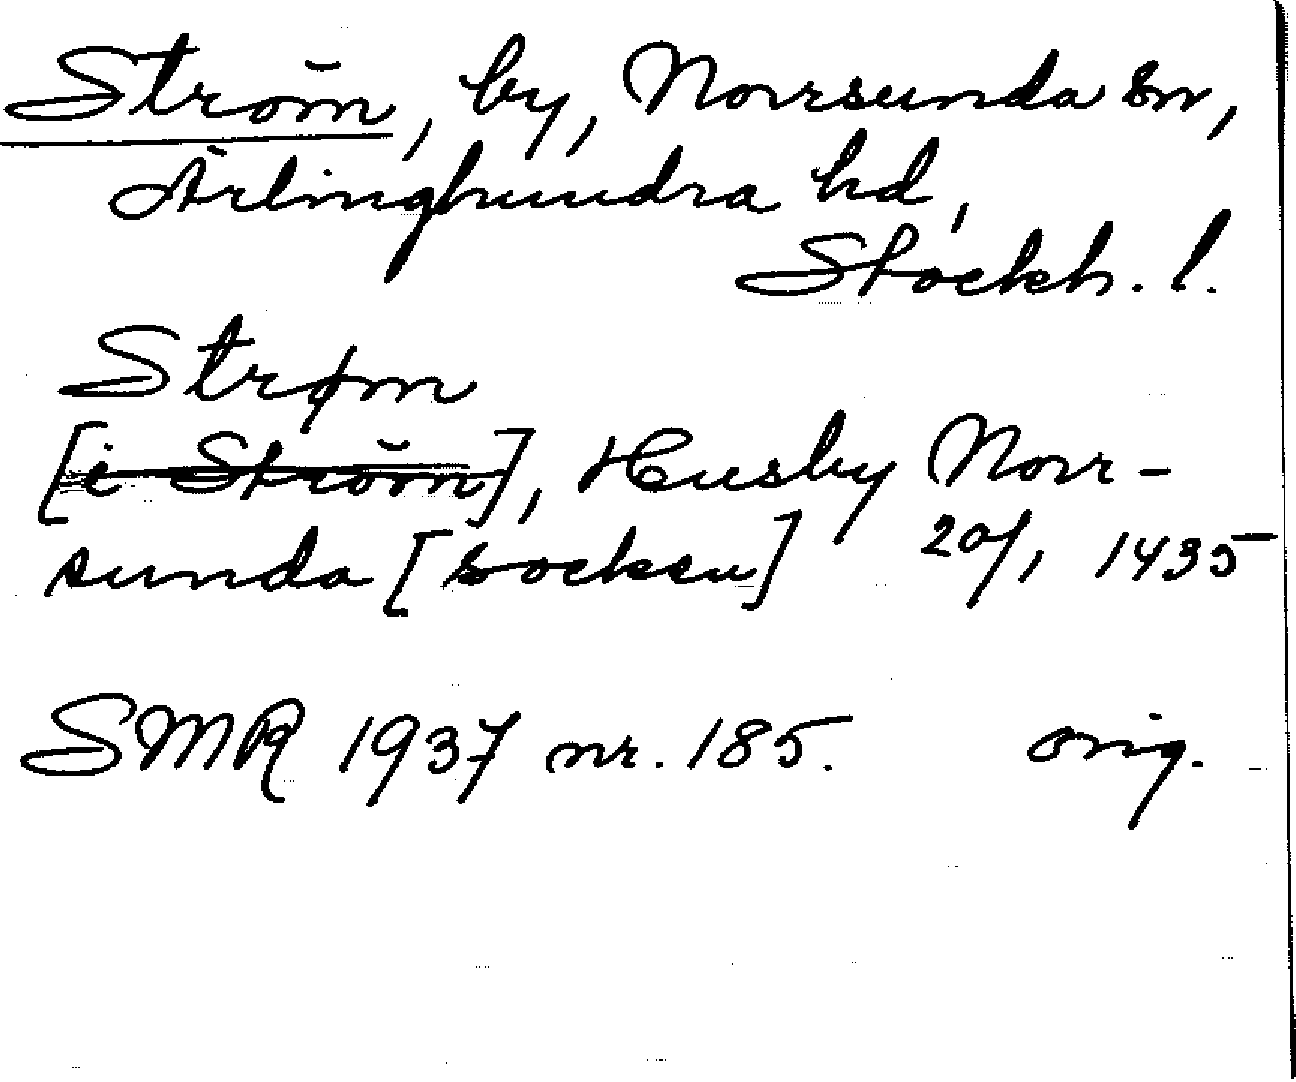 Ström, by, Norrsunda sn,
Ärlinghundra hd,
Stockh. l.
Strøm
[i Ström], Husby Norr-
sunda [socken] 20/1 1435
SMR 1937 nr. 185. orig.